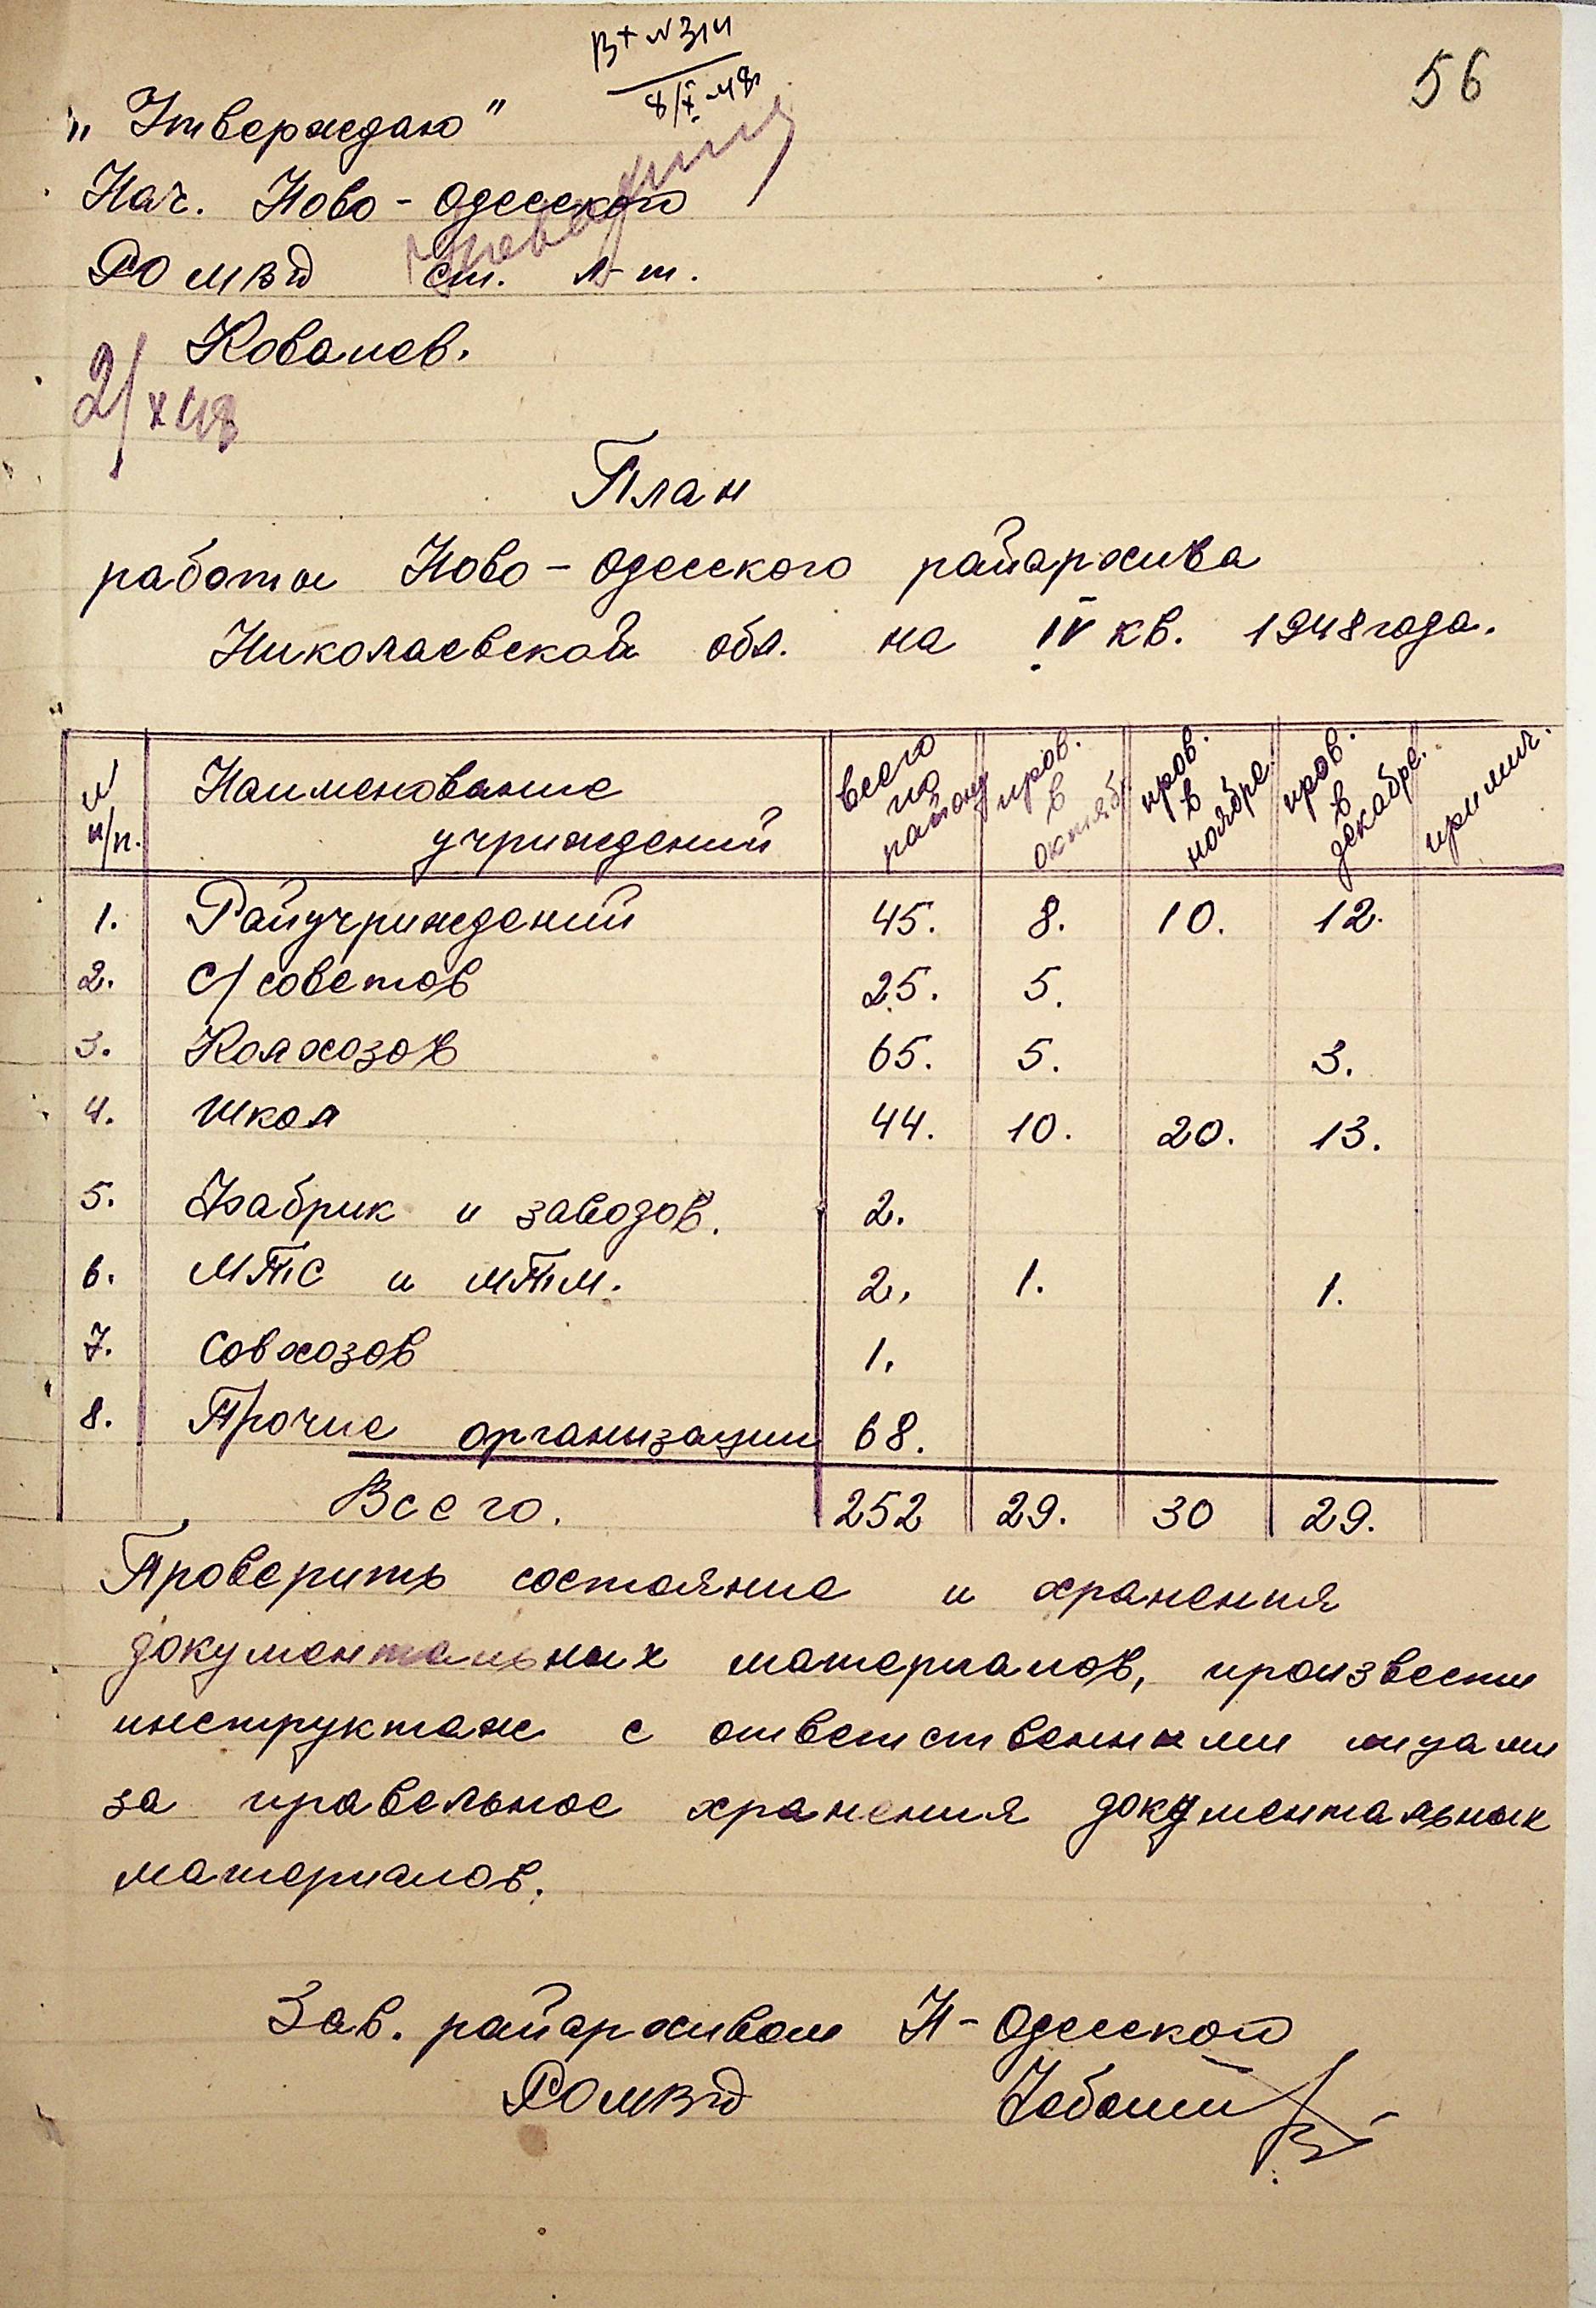 56
Вх №314
8/X-48г
„Утверждаю"
Нач. Ново-Одесского
РО МВД ст. л-т.
Ковалев.
2/X 48
План
работы Ново-Одесского райархива
Николаевской обл. на IV кв. 1948 года.
№ п/п. Наименование учриждений всего по району пров. в октяб. пров. в ноябре. пров. в декабре. примич.
1. Райучриждений 45. 8. 10. 12.
2. с/советов 25. 5.
3. Колхозов 65. 5. 3.
4. Школ 44. 10. 20. 13.
5. Фабрик и заводов. 2.
6. МТС и МТМ. 2. 1. 1.
7. Совхозов 1.
8. Прочие организации 68.
Всего. 252 29. 30 29.
Проверить состояние и хранения
документальных материалов, произвести
инструктаж с ответственными лицами
за правельное хранения документальных
материалов.
Зав. райархивом Н-Одесского
РОМВД